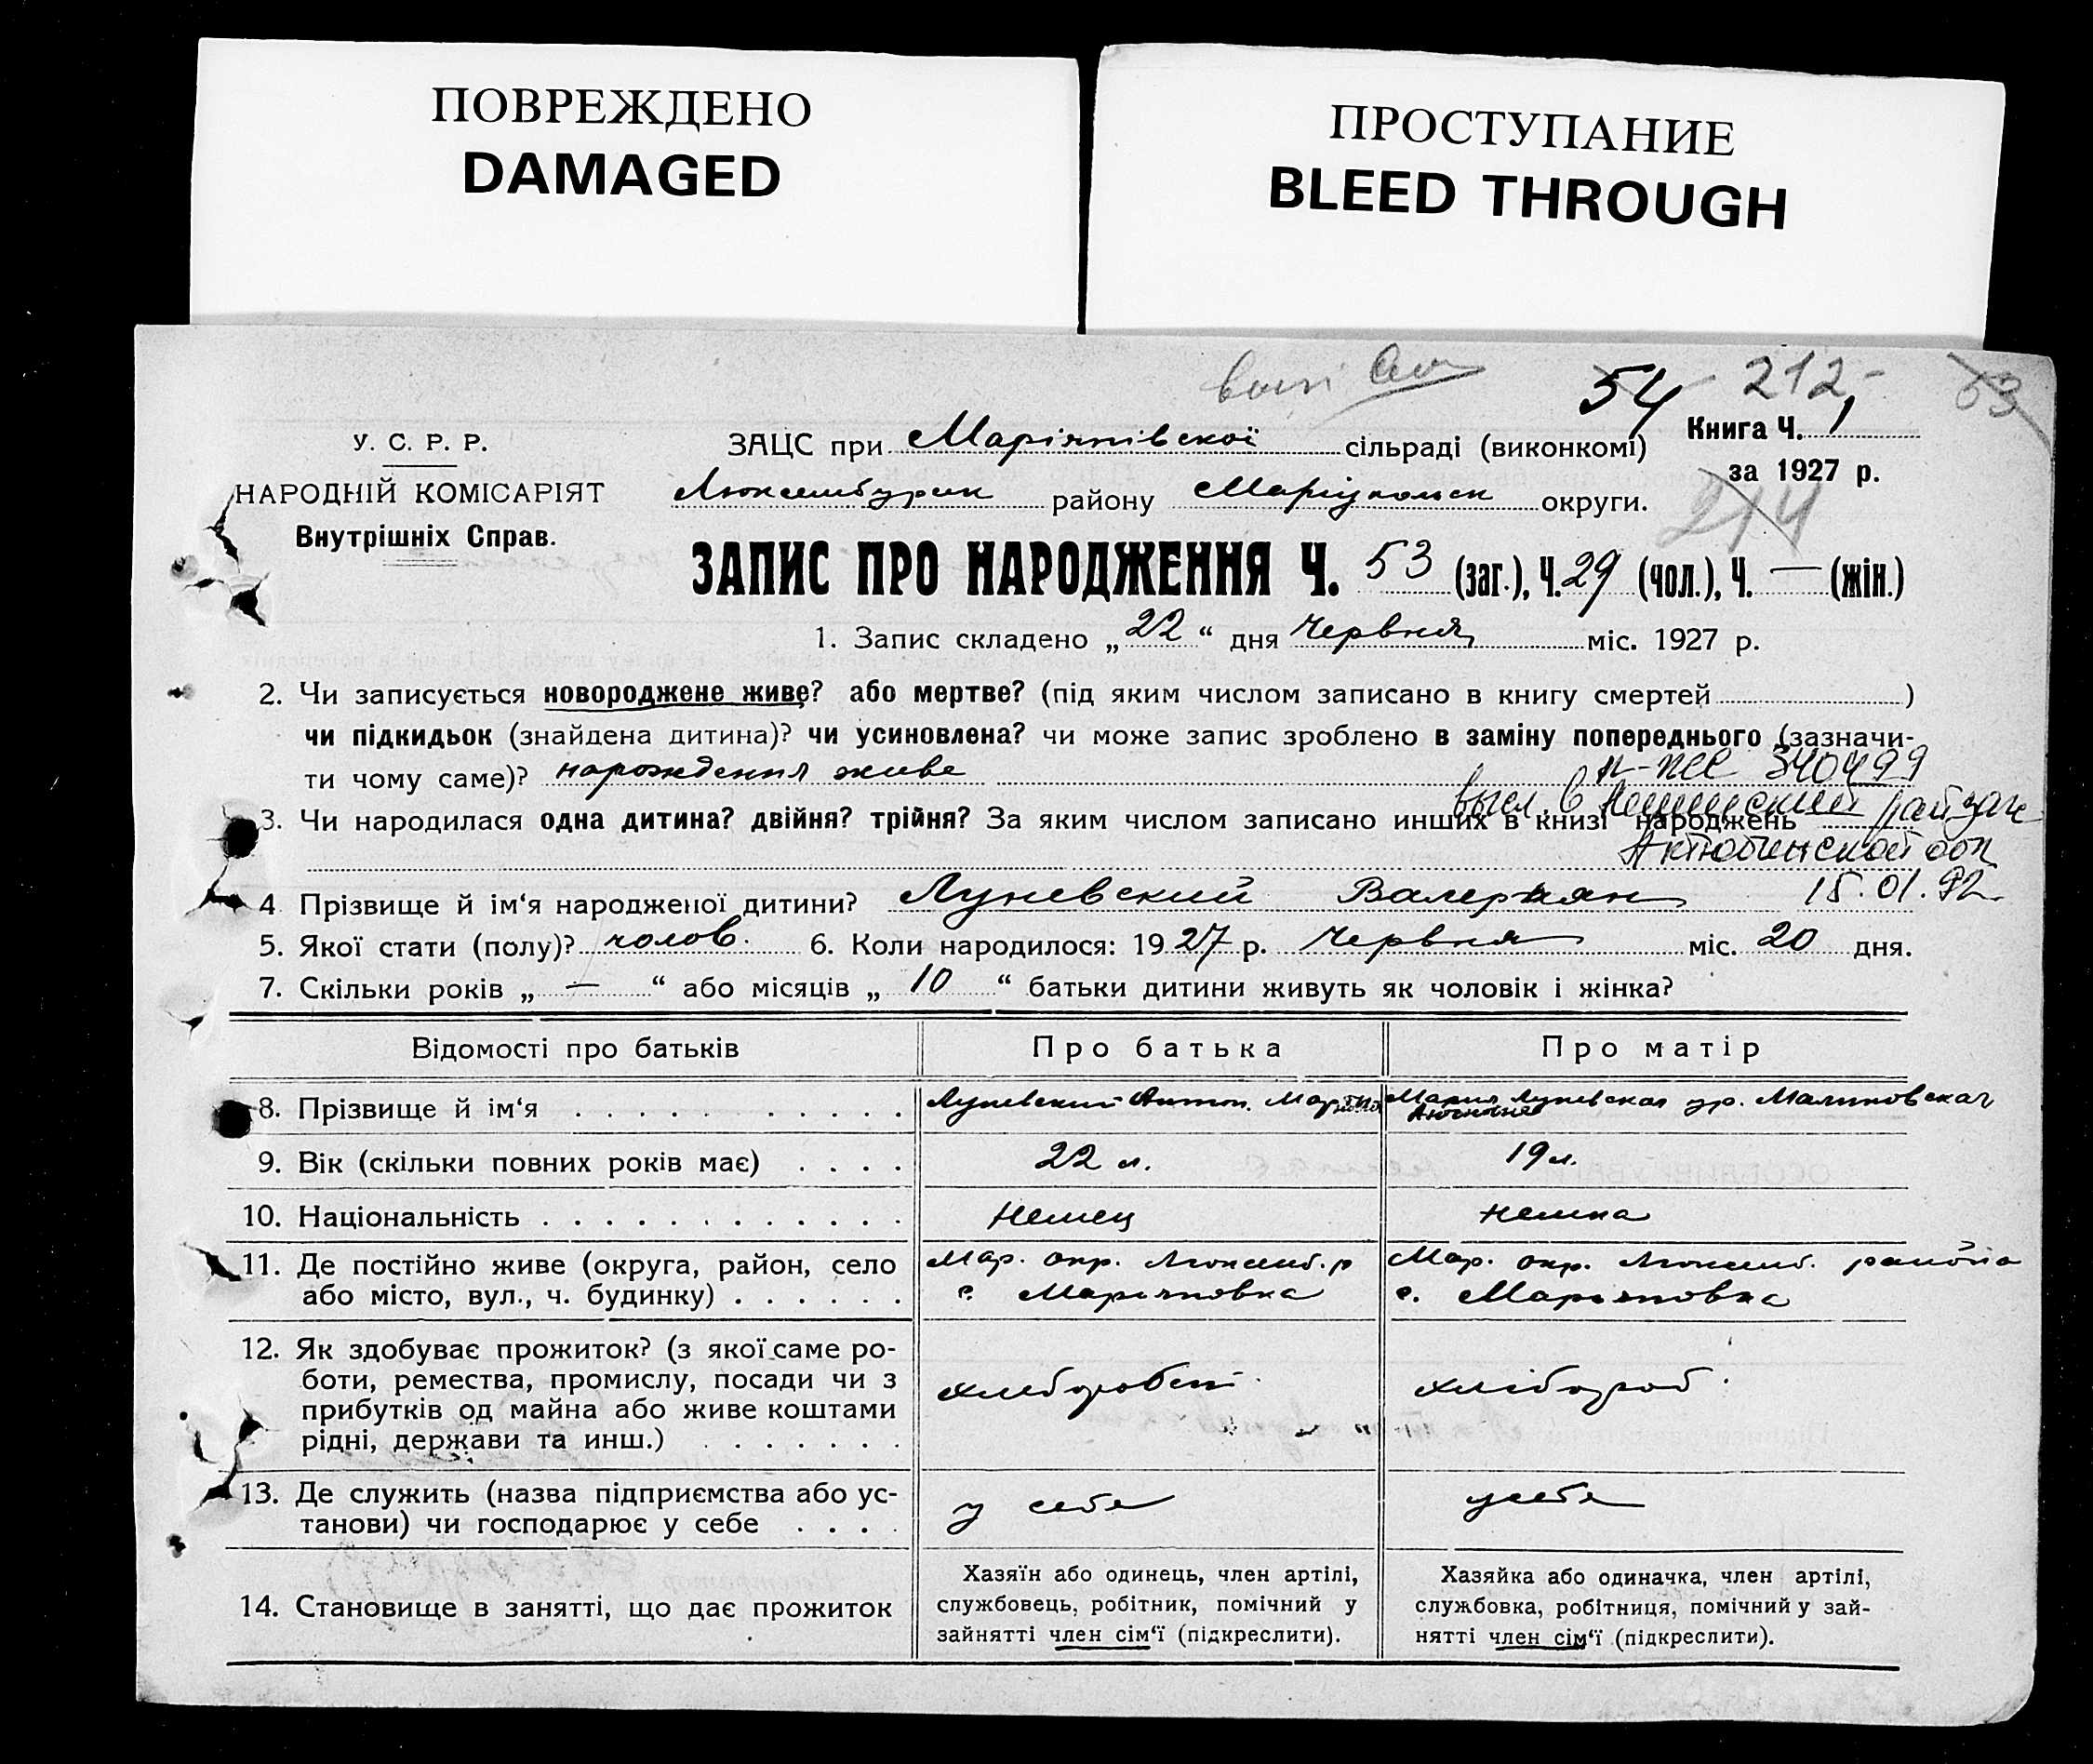 ПОВРЕЖДЕНО
DAMAGED
ПРОСТУПАНИЕ
BLEED THROUGH
54 212,- 53
У. С. Р. Р.
НАРОДНІЙ КОМІСАРІЯТ
Внутрішніх Справ.
ЗАЦС при Маріянівскої сільраді (виконкомі)
Книга Ч. 1
за 1927 р.
Люксембургск району Маріупольск округи.
214
ЗАПИС ПРО НАРОДЖЕННЯ Ч. 53 (заг.), Ч. 29 (чол.), Ч. — (жін.)
1. Запис складено „ 22 “ дня Червня міс. 1927 р.
2. Чи записується новороджене живе? або мертве? (під яким числом записано в книгу смертей )
чи підкидьок (знайдена дитина)? чи усиновлена? чи може запис зроблено в заміну попереднього (зазначи-
ти чому саме)? нарождения живе
340499
3. Чи народилася одна дитина? двійня? трійня? За яким числом записано инших в книзі народжень
высл. в райзагс
Актюбинской обл
4 Прізвище й ім‘я народженої дитини? Луневский Валерьян 15.01.92
5. Якої стати (полу)? чолов. 6. Коли народилося: 1927 р. Червня міс. 20 дня.
7. Скільки років „ — “ або місяців „ 10 “ батьки дитини живуть як чоловік і жінка?
Відомості про батьків Про батька Про матір
8. Прізвище й ім‘я Луневский Антон Мария Луневская ур. Малиновская
9. Вік (скільки повних років має) 22 л. 19 л.
10. Національність Немец немка
11. Де постійно живе (округа, район, село Мар. окр. Люксемб. р Мар. окр. Люксемб. района
або місто, вул., ч. будинку) с. Марьяновка с. Марьяновка
12. Як здобуває прожиток? (з якої саме ро-
боти, ремества, промислу, посади чи з хлебороб
прибутків од майна або живе коштами
рідні, держави та инш.)
13. Де служить (назва підприємства або ус- у себя у себя
танови) чи господарює у себе
14. Становище в занятті, що дає прожиток
Хазяїн або одинець, член артілі,
службовець, робітник, помічний у
зайнятті член сім‘ї (підкреслити).
Хазяйка або одиначка, член артілі,
службовка, робітниця, помічний у зай-
нятті член сім‘ї (підкреслити).